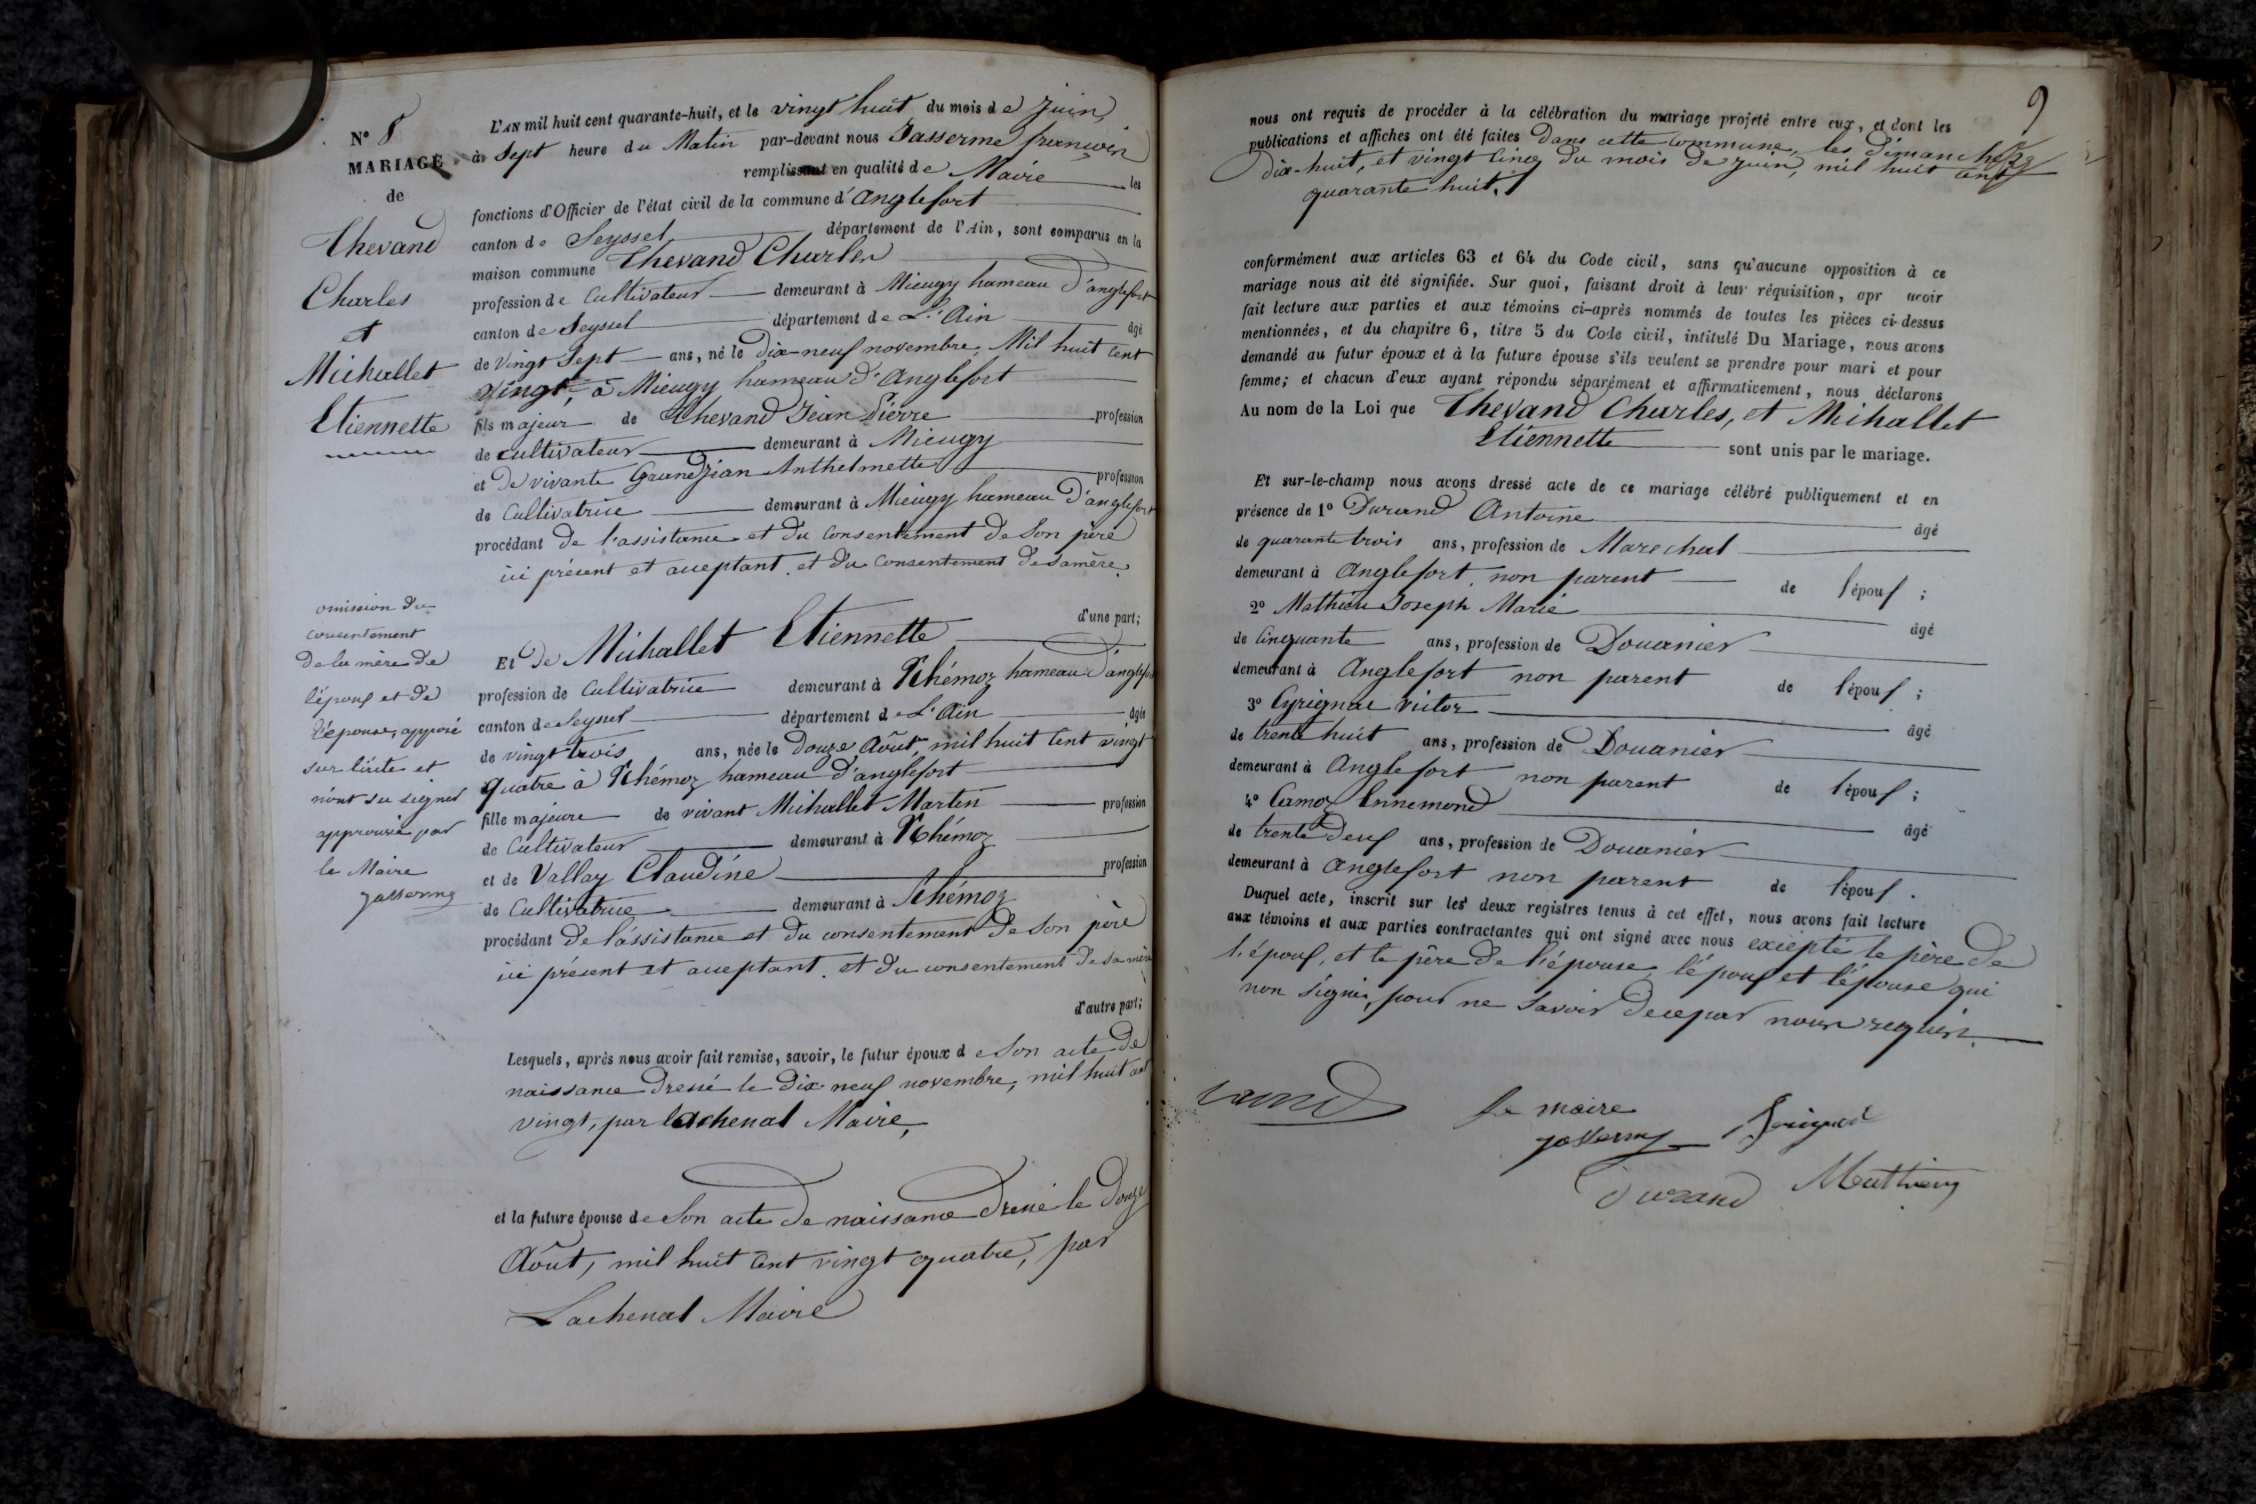 N° 8
MARIAGE
de
Thevand
Charles
et
Michallet
Etiennette
L'AN mil huit cent quarante-huit, et le vingt huit du mois de Juin
à Sept heure du Matin par-devant nous Jasserme françois
remplissant en qualité de Maire les
fonctions d'Officier de l'état civil de la commune d'Anglefort
canton de Seyssel département de l'Ain, sont comparus en la
maison commune Thevand Charles
profession de Cultivateur demeurant à Mieugy hameau d'anglefort
canton de Seyssel département de L'Ain âgé
de Vingt Sept ans, né le Dix-neuf novembre, Mil huit Cent
Vingt, à Mieugy hameau d'Anglefort
fils majeur de Thevand Jean Pierre profession
de cultivateur demeurant à Mieugy
et de vivante Grandjean Anthelmette profession
de Cultivatrice demeurant à Mieugy hameau d'anglefort
procédant de l'assistance et du consentement de Son père
ici présent et acceptant. et du consentement de sa mère.
d'une part;
omission du
consentement
de la mère de
l'époux et de
l'épouse, apposé
sur l'écrite et
n'ont su signer
approuvé par
le Maire
Jasserme
Et de Michallet Etiennette
profession de Cultivatrice demeurant à Rhémoz hameau d'anglefort
canton de Seyssel département de L'Ain âgée
de vingt trois ans, née le Douze Août, mil huit Cent vingt
quatre à Rhémoz hameau d'anglefort
fille majeure de vivant Michallet Martin profession
de Cultivateur demeurant à Rhémoz
et de Vallay Claudine profession
de Cultivatrice demeurant à Rhémoz
procédant de l'assistance et du consentement de Son père
ici présent et acceptant. et du consentement de sa mère
d'autre part;
Lesquels, après nous avoir fait remise, savoir, le futur époux de Son acte de
naissance Dressé le Dix-neuf novembre, mil huit cent
vingt, par Lachenal Maire,
et la future épouse de Son acte de naissance Dressé le Douze
Août, mil huit Cent vingt quatre, par
Lachenal Maire
9
nous ont requis de procéder à la célébration du mariage projeté entre eux, et dont les
publications et affiches ont été faites Dans cette commune, les dimanches
Dix-huit, et vingt Cinq du mois de Juin, mil huit cent
quarante huit.
conformément aux articles 63 et 64 du Code civil, sans qu'aucune opposition à ce
mariage nous ait été signifiée. Sur quoi, faisant droit à leur réquisition, apr avoir
fait lecture aux parties et aux témoins ci-après nommés de toutes les pièces ci-dessus
mentionnées, et du chapitre 6, titre 5 du Code civil, intitulé Du Mariage, nous avons
demandé au futur époux et à la future épouse s'ils veulent se prendre pour mari et pour
femme; et chacun d'eux ayant répondu séparément et affirmativement, nous déclarons
Au nom de la Loi que Thevand Charles, et Mihallet
Etiennette sont unis par le mariage.
Et sur-le-champ nous avons dressé acte de ce mariage célébré publiquement et en
présence de 1° Durand Antoine âgé
de quarante trois ans, profession de Marechal
demeurant à Anglefort, non parent de l'époux;
2° Mathieu Joseph Marie âgé
de Cinquante ans, profession de Douanier
demeurant à Anglefort non parent de l'époux;
3° Cyrignat Victor âgé
de trente huit ans, profession de Douanier
demeurant à Anglefort non parent de l'époux;
4° Camoz Ennemond âgé
de trente Deux ans, profession de Douanier
demeurant à Anglefort non parent de l'époux.
Duquel acte, inscrit sur les deux registres tenus à cet effet, nous avons fait lecture
aux témoins et aux parties contractantes qui ont signé avec nous excepté le père de
l'époux, et le père de l'épouse, l'époux et l'épouse qui
non signés, pour ne Savoir de ce par nous requis.
le maire
Jasserme
Durand Matthieu